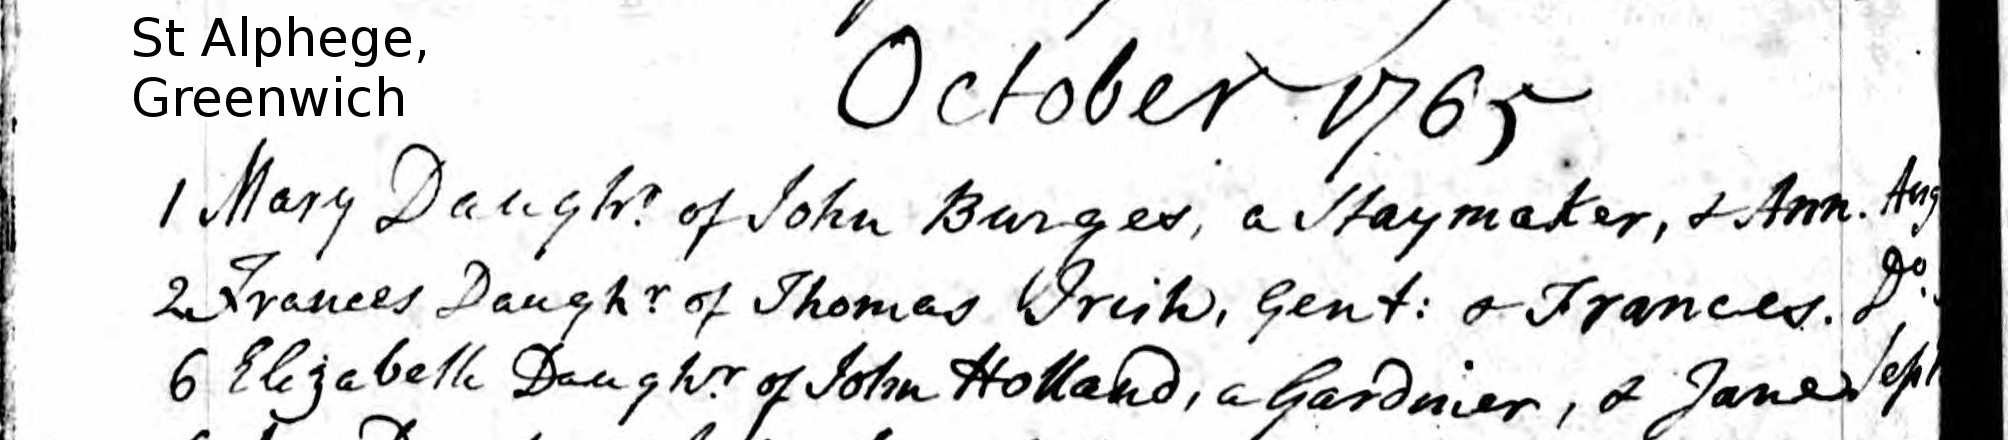 St Alphege,
Greenwich
October 1765
1 Mary Daughr. of John Burges, a Staymaker, & Ann. Aug
2 Frances Daughr. of Thomas Irish, Gent: & Frances. Do.
6 Elizabeth Daughr. of John Holland, a Gardiner, & Jane Sept